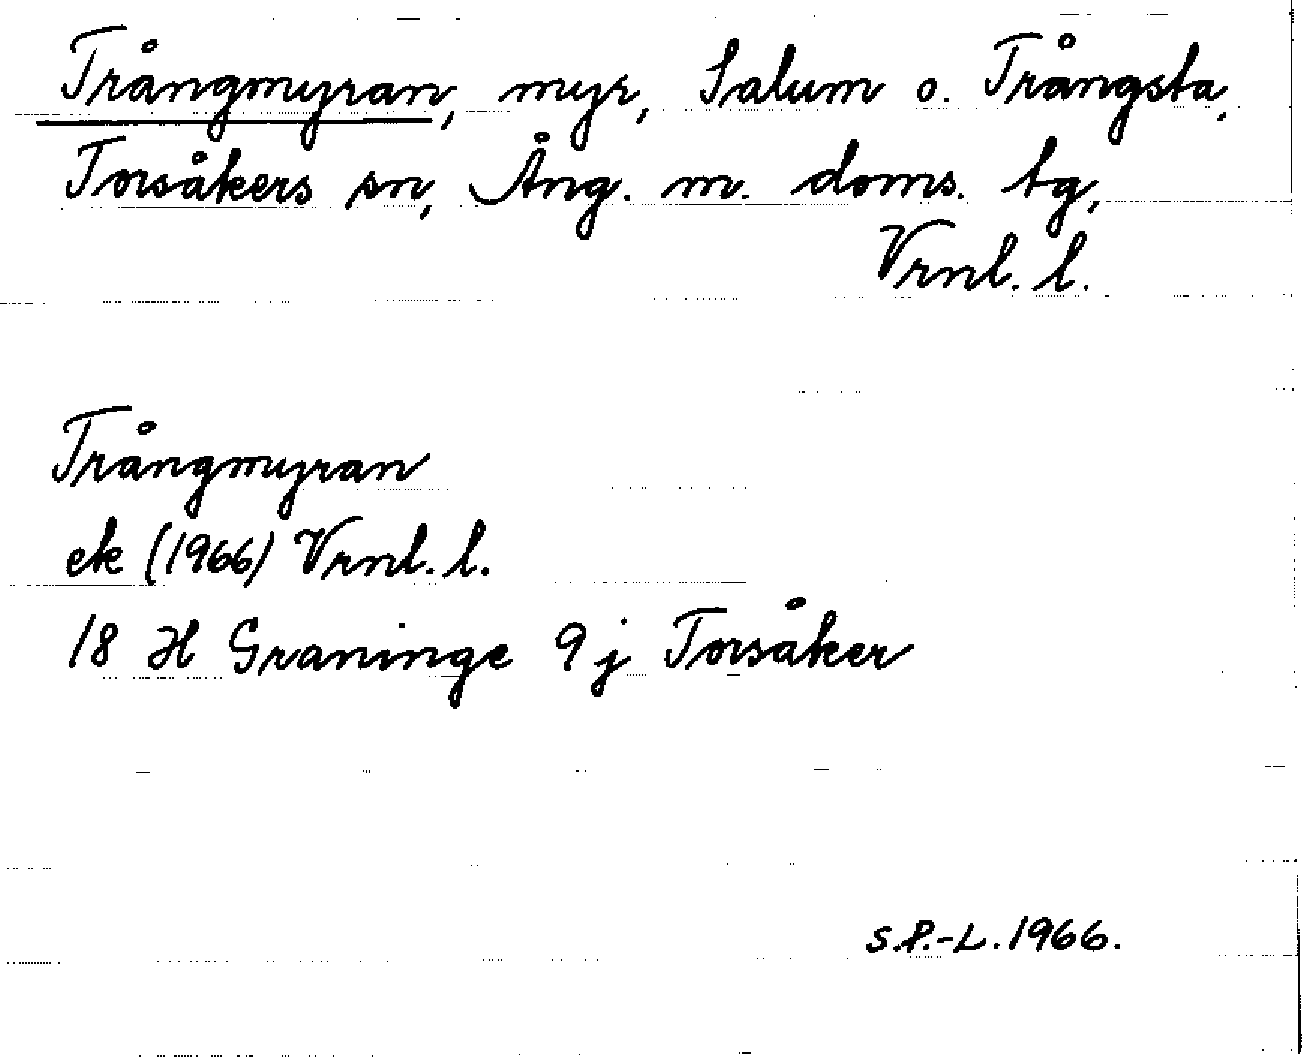 Trångmyran, myr, Salum o. Trångsta,
Torsåkers sn, Ång. m. doms. tg,
Vrnl. l.
Trångmyran
ek (1966) Vrnl. l.
18 H Graninge 9 j Torsåker
S.P.-L. 1966.